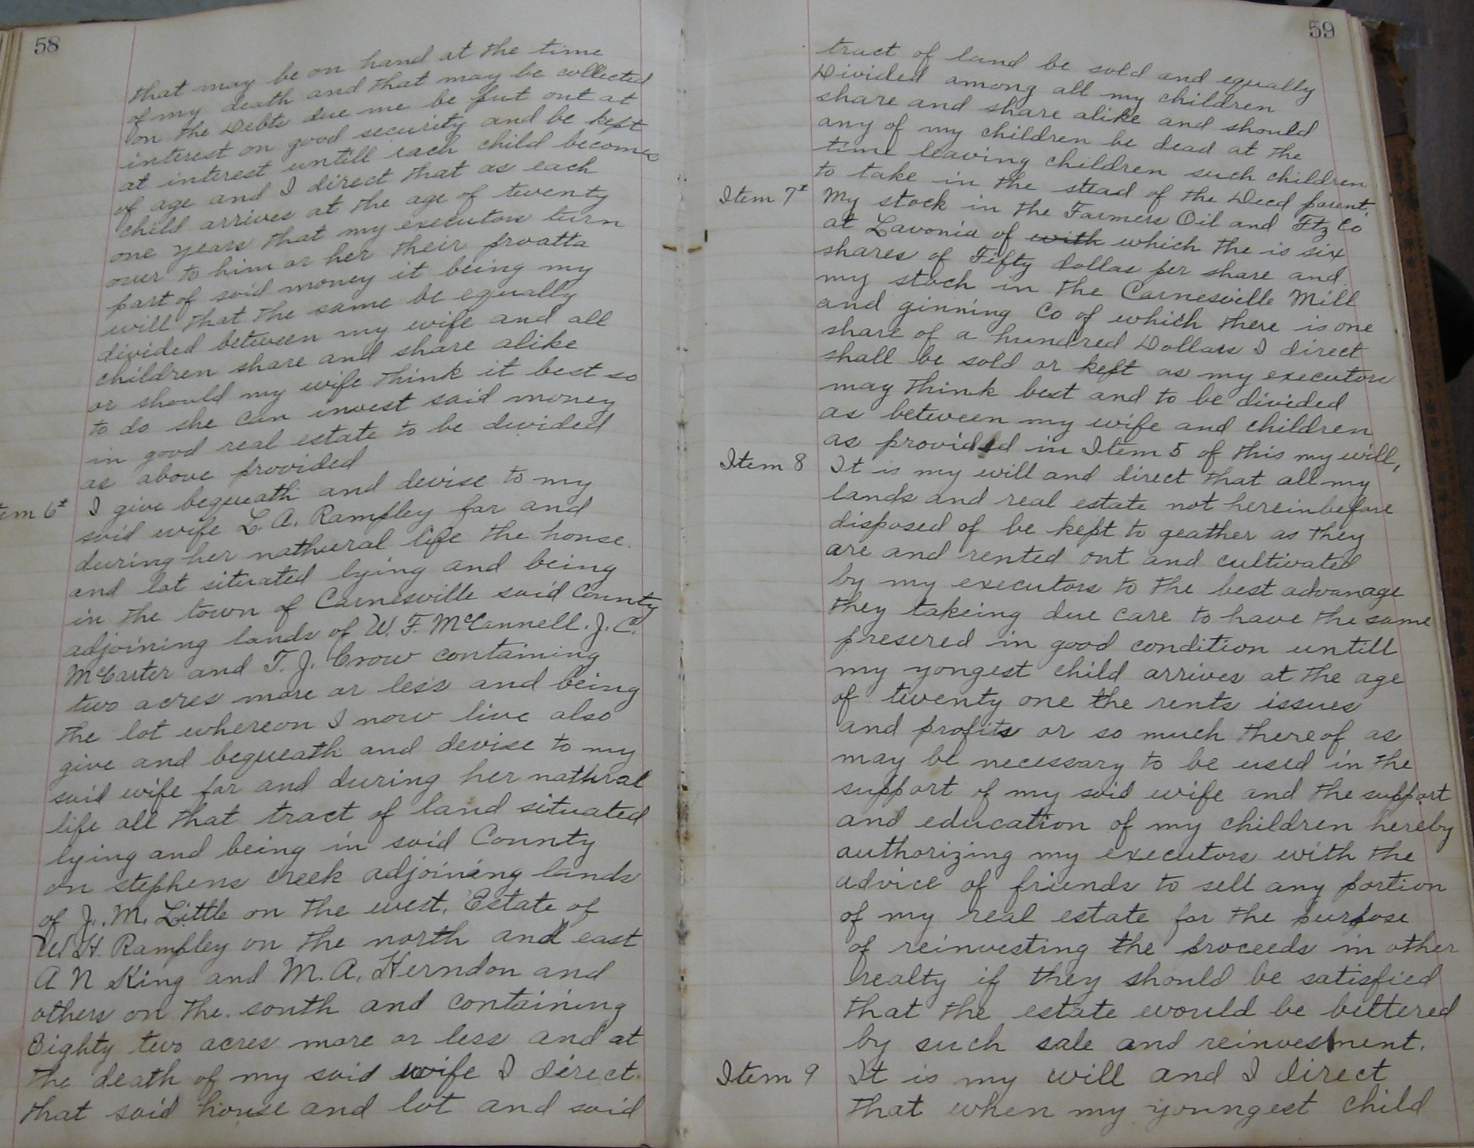 58
that may be on hand at the time
of my death and that may be collected
on the Debts due me be put out at
interest on good security and be kept
at interest untill each child becomes
of age and I direct that as each
child arrives at the age of twenty
one years that my executors turn
over to him or her their proatta
part of said money it being my
will that the same be equally
divided between my wife and all
children share and share alike
or should my wife think it best so
to do she can invest said money
in good real estate to be divided
as above provided
em 6t I give bequeath and devise to my
said wife L. A. Rampley for and
during her nathural life the house
and lot situated lying and being
in the town of Carnesville said County
adjoining lands of W. F. McConnell. J. C.
McCarter and T. J. Crow containing
two acres more or less and being
the lot whereon I now live also
give and bequeath and devise to my
said wife for and during her nathral
life all that tract of land situated
lying and being in said County
on stephens creek adjoining lands
of J. M. Little on the west, Estate of
W H Rampley on the north and east
A N King and M. A. Herndon and
others on the south and containing
Eighty two acres more or less and at
the death of my said wife I direct
that said house and lot and said
59
tract of land be sold and equally
Divided among all my children
share and share alike and should
any of my children be dead at the
time leaving children such children
to take in the stead of the Decd parent.
Item 7t My stock in the Farmers Oil and Ftz Co
at Lavonia of with which the is six
shares of Fifty dollas per share and
my stock in the Carnesville Mill
and ginning Co of which there is one
share of a hundred Dollars I direct
shall be sold or kept as my executors
may think best and to be divided
as between my wife and children
as provided in Item 5 of this my will,
Item 8 It is my will and direct that all my
lands and real estate not hereinbefore
disposed of be kept to geather as they
are and rented out and cultivated
by my executors to the best advanage
they takeing due care to have the same
presered in good condition untill
my yongest child arrives at the age
of twenty one the rents issues
and profits or so much thereof as
may be necessary to be used in the
support of my said wife and the support
and education of my children hereby
authorizing my executors with the
advice of friends to sell any portion
of my real estate for the purpose
of reinvesting the proceeds in other
realty if they should be satisfied
that the estate would be bittered
by such sale and reinvestment.
Item 9 It is my will and I direct
that when my youngest child